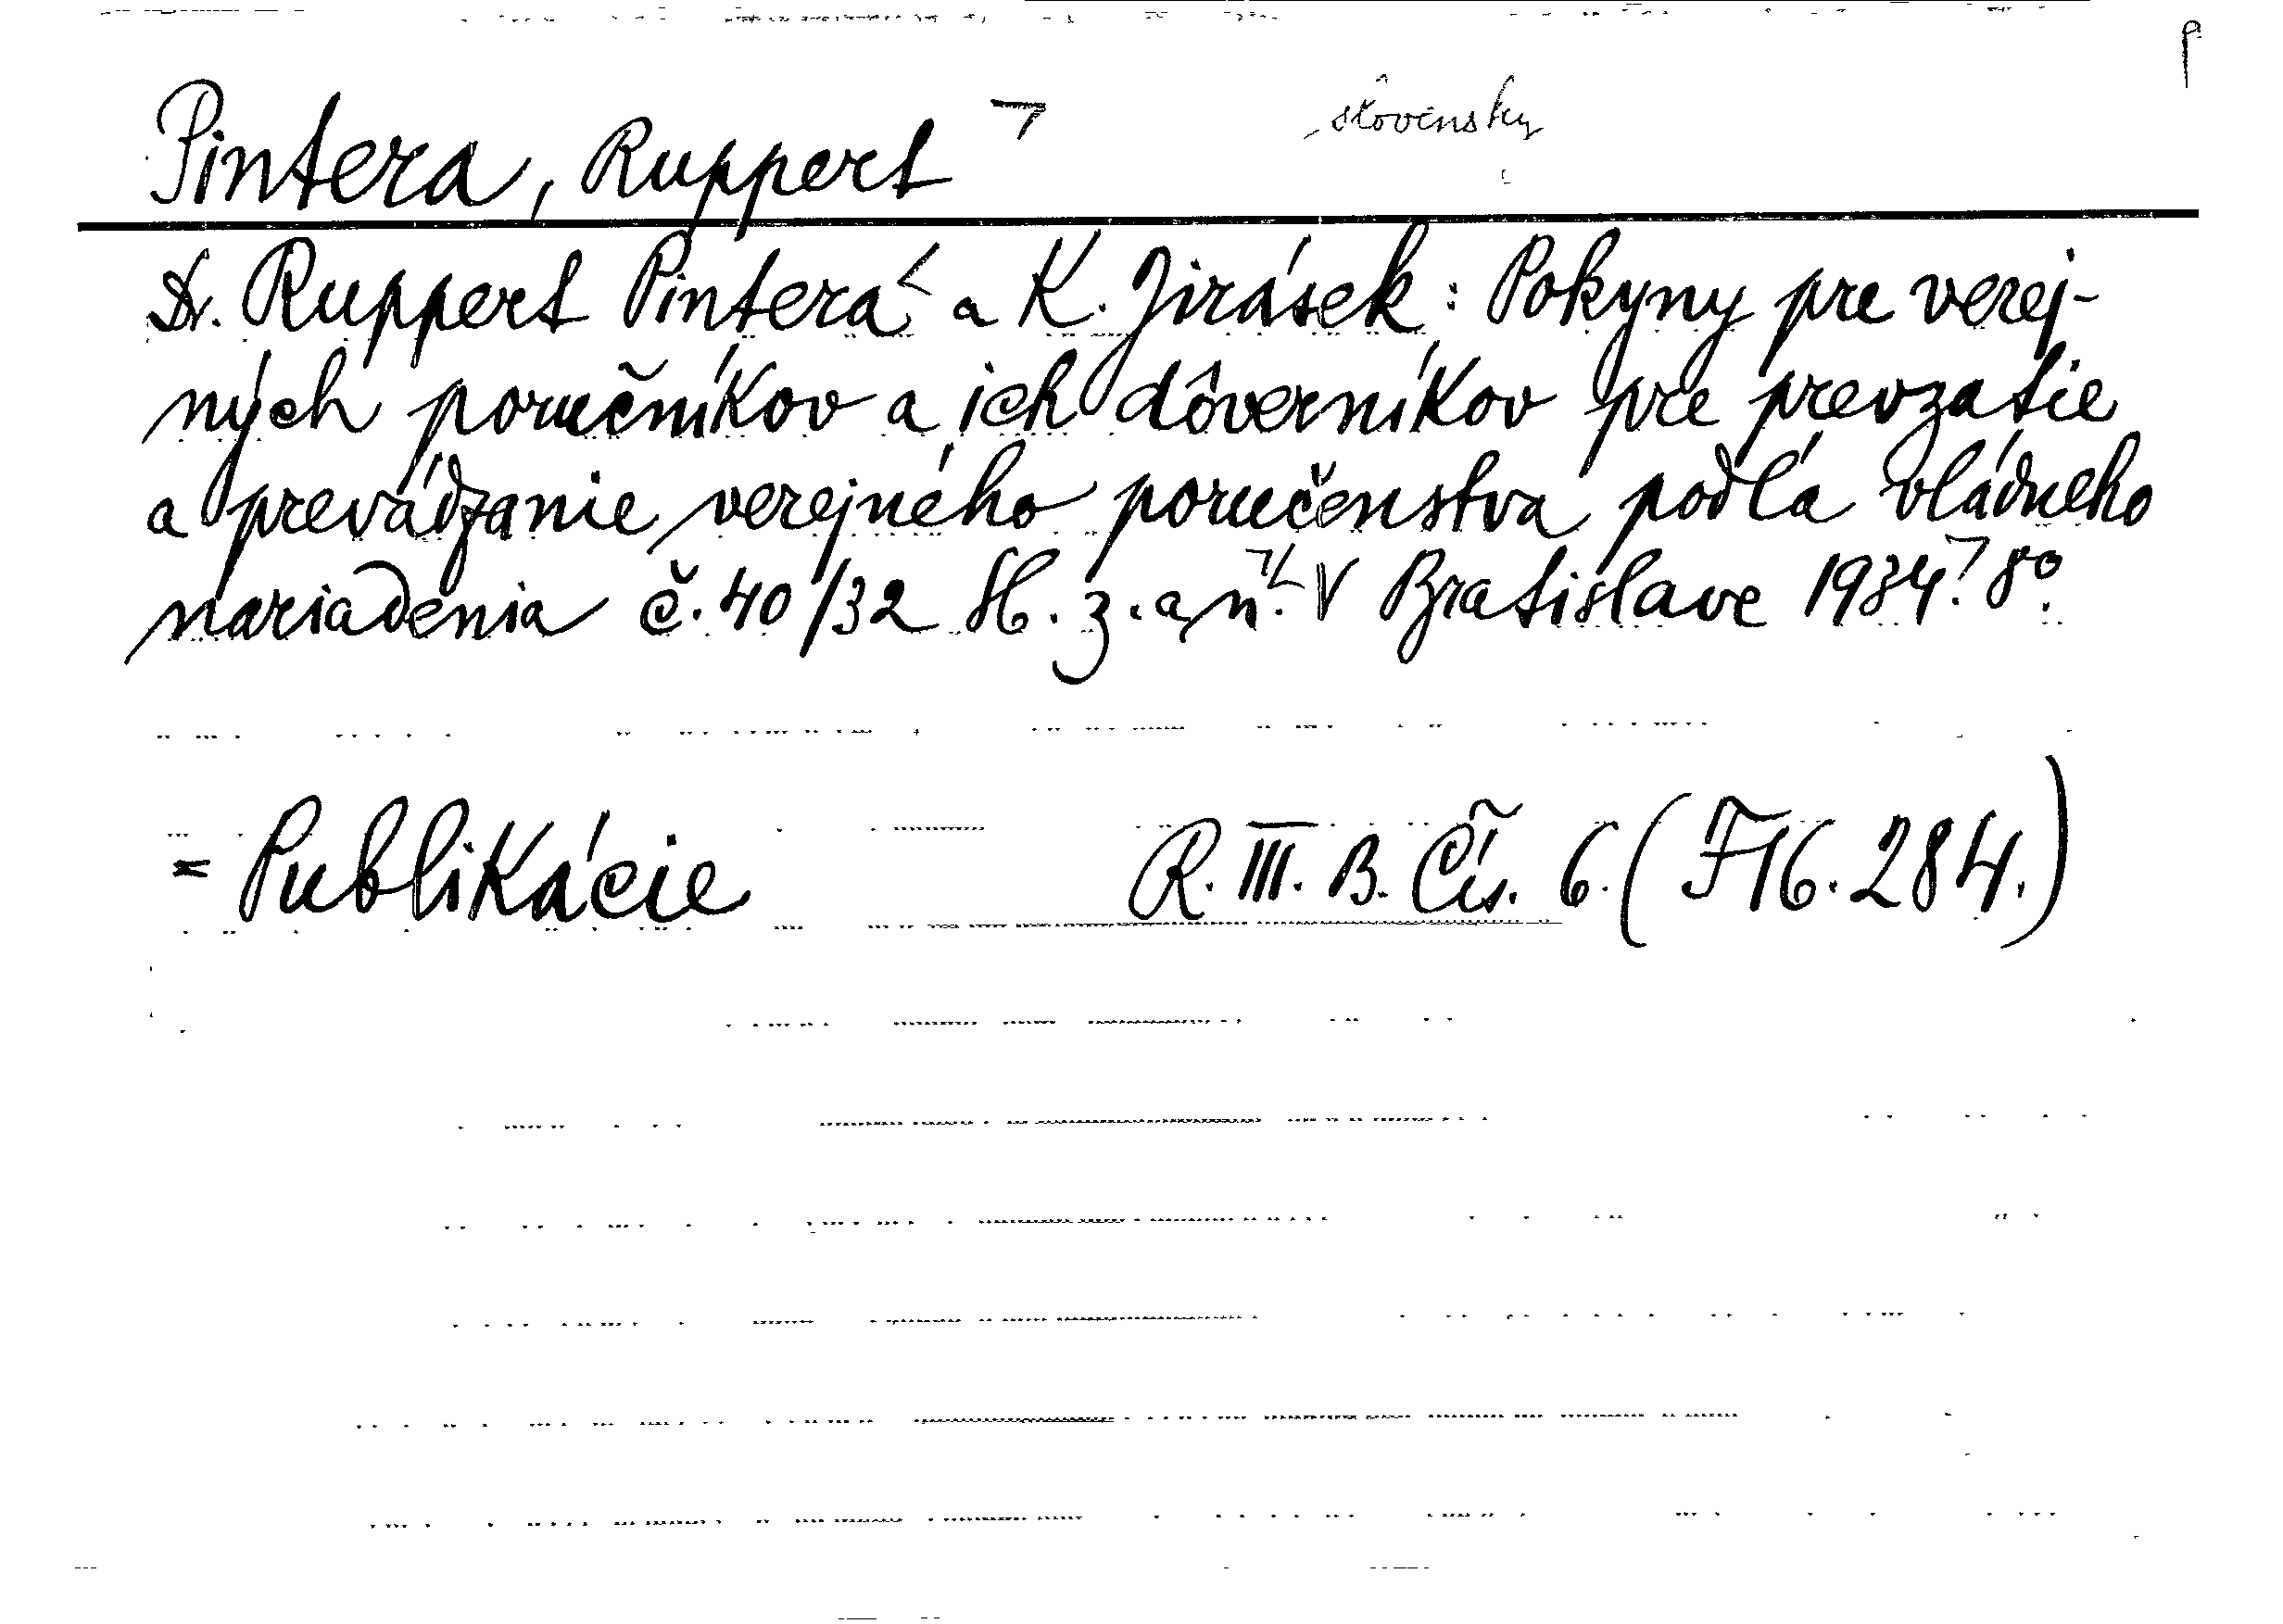 Pintera, Ruppert slovensky
Dr. Ruppert Pintera a K. Jirásek: Pokyny pre verej-
ných poručníkov a ich dôverníkov pre prevzatie
a prevádzanie verejného poručenstva podľa vládneho
nariadenia č. 40/32 Sb. z. a n. V Bratislave 1934. 8º.
= Publikácie R. III. B. Čís. 6. (F 16. 284.)